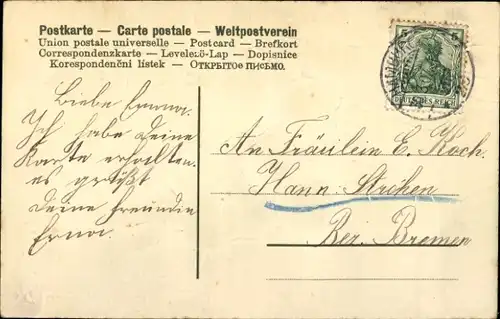 Postkarte — Carte postale — Weltpostverein
Union postale universelle — Postcard — Brefkort
Correspondenzkarte — Levelező-Lap — Dopisnice
Korespondenčni listek — ОТКРЫТОЕ ПИСЬМО.
5 5
DEUTSCHES REICH
Liebe Emma.
Ich habe deine
Karte erhalten.
es grüßt
deine Freundin
Erna.
An Fräulein E. Koch.
Hann. Ströhen
Bez. Bremen